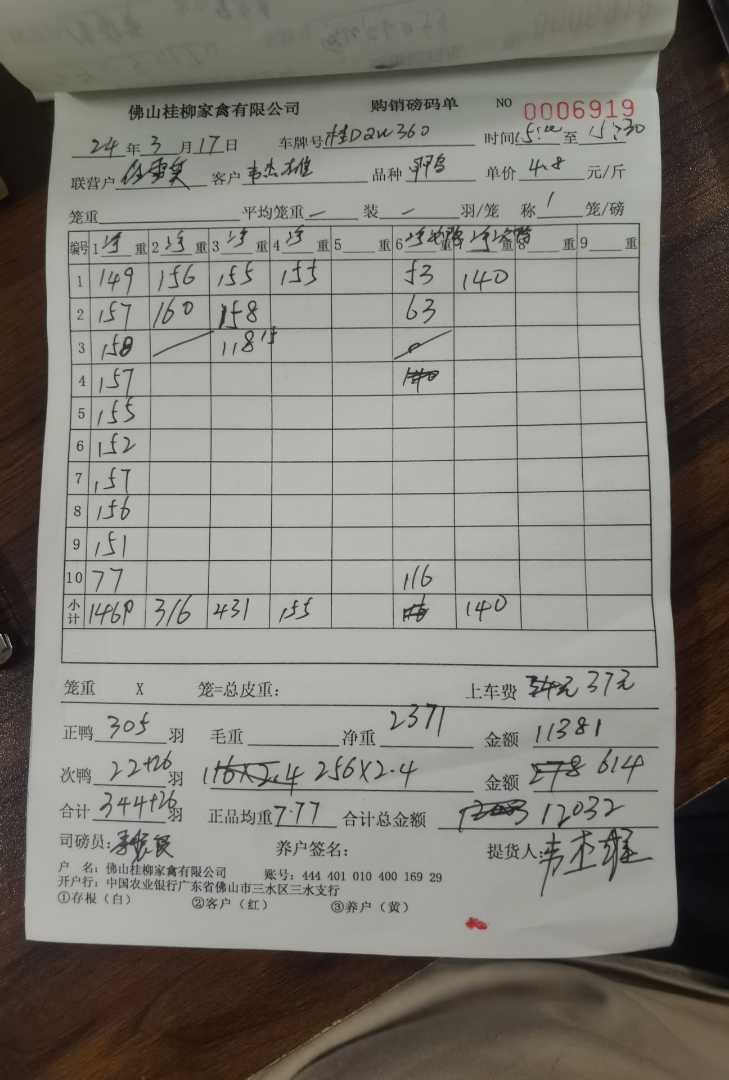 佛山桂柳家禽有限公司 购销磅码单 NO 0006919
24 年 3 月 17 日 车牌号 桂D2W360 时间 15:00 至 15:30
联营户 客户 韦杰雄 品种 单价 4.8 元/斤
笼重 平均笼重 — 装 — 羽/笼 称 1 笼/磅
编号 1 净 重 2 净 重 3 净 重 4 净 重 5 重 6 净 重 7 净 重 8 重 9 重
1 149 156 155 155 53 140
2 157 160 158 63
3 158 118 15
4 157
5 155
6 152
7 157
8 156
9 151
10 77 116
小计 1469 316 431 155 140
笼重 X 笼=总皮重: 上车费 37元
正鸭 305 羽 毛重 净重 2371 金额 11381
次鸭 22+26 羽 116X2.4 256X2.4 金额 278 614
合计 344+26 羽 正品均重 7.77 合计总金额 12032
司磅员: 养户签名: 提货人: 韦杰雄
户 名: 佛山桂柳家禽有限公司 账号: 444 401 010 400 169 29
开户行: 中国农业银行广东省佛山市三水区三水支行
①存根（白） ②客户（红） ③养户（黄）